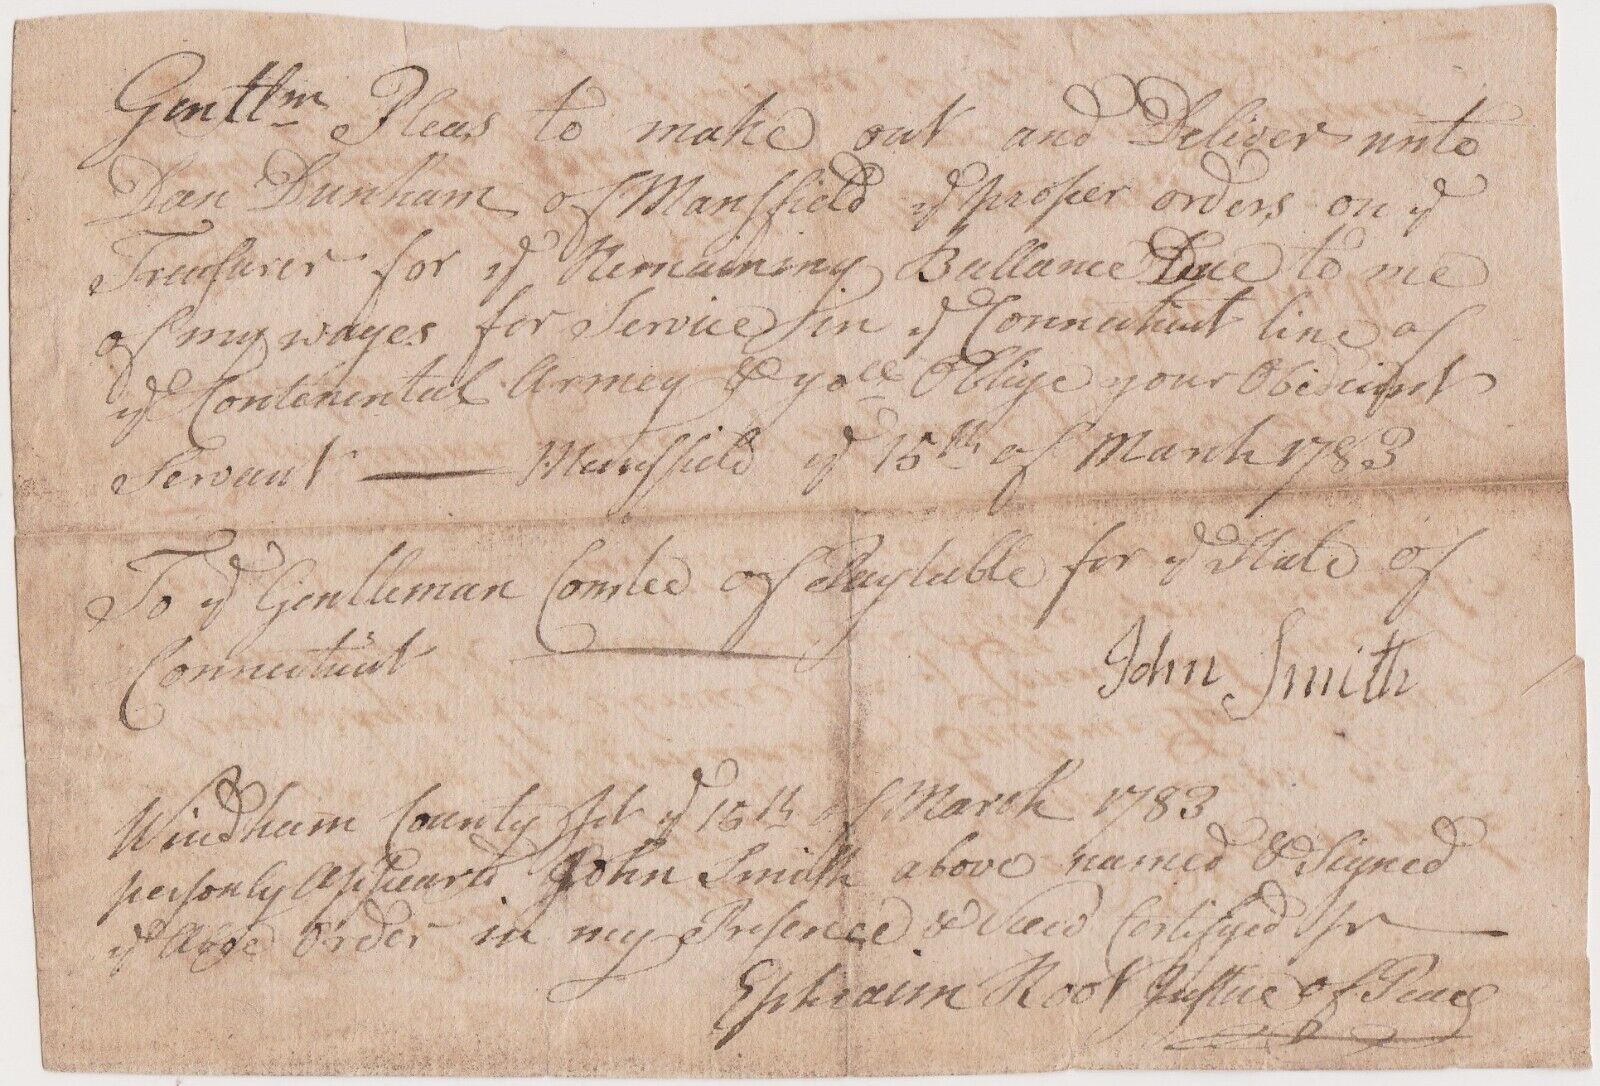 Gentlm Pleas to make out and Deliver unto
Dan Dunham of Mansfield ye proper orders on ye
Treasurer for ye Remaining Ballance Due to me
of my wages for Service in ye Connecticut line of
ye Contenental Armey & yole Oblige your Obedient
Servant — Mansfield ye 15th of March 1783
To ye Gentleman Comtee of Paytable for ye State of
Connecticut
John Smith
Windham County ye 15th of March 1783
personly Appeard John Smith above named & Signed
ye Above Order in my Presence & Certifyed pr
Ephraim Root Justice of Peace